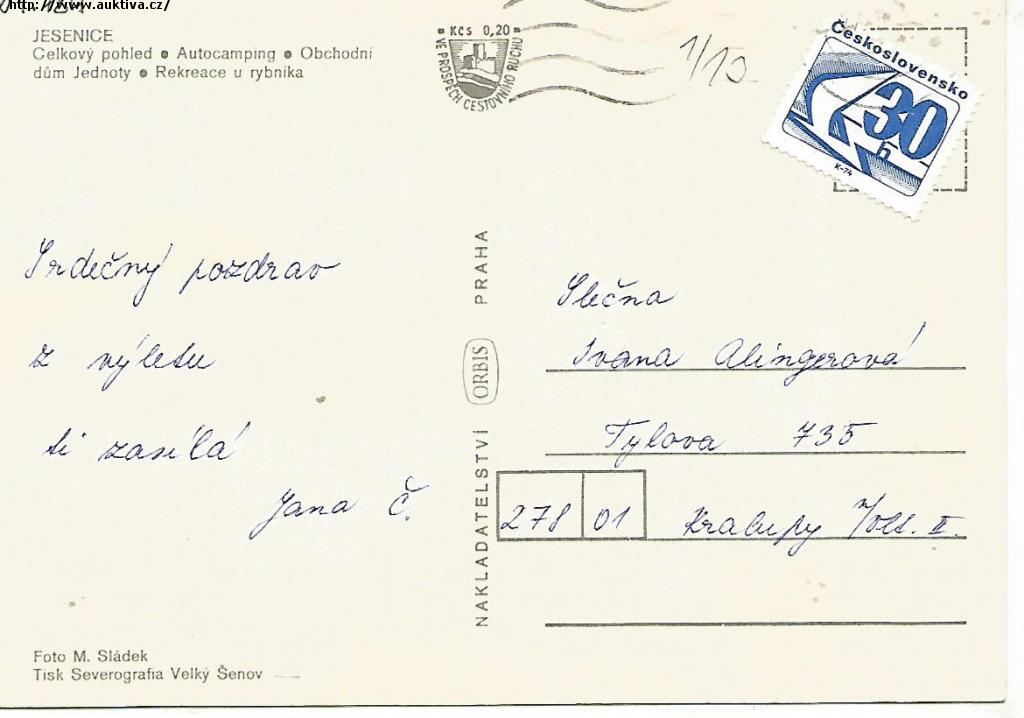 http://www.auktiva.cz/
JESENICE
Celkový pohled ● Autocamping ● Obchodní
dům Jednoty ● Rekreace u rybníka
Kčs 0,20
VE PROSPĚCH CESTOVNÍHO RUCHU
1/10
Československo
30
h
K-74
Srdečný pozdrav
z výletu
ti zasílá
Jana Č.
NAKLADATELSTVÍ ORBIS PRAHA
Slečna
Ivana Alingerová
Tylova 735
278 01 Kralupy n/Vlt. II.
Foto M. Sládek
Tisk Severografia Velký Šenov